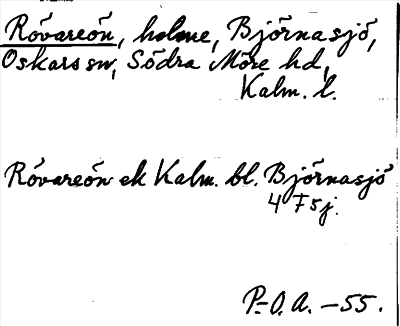 Rövareön, holme, Björnasjö,
Oskars sn, Södra Möre hd,
Kalm. l.
Rövareön ek Kalm. bl. Björnasjö
4 F 5 j.
P.-O. A. -55.